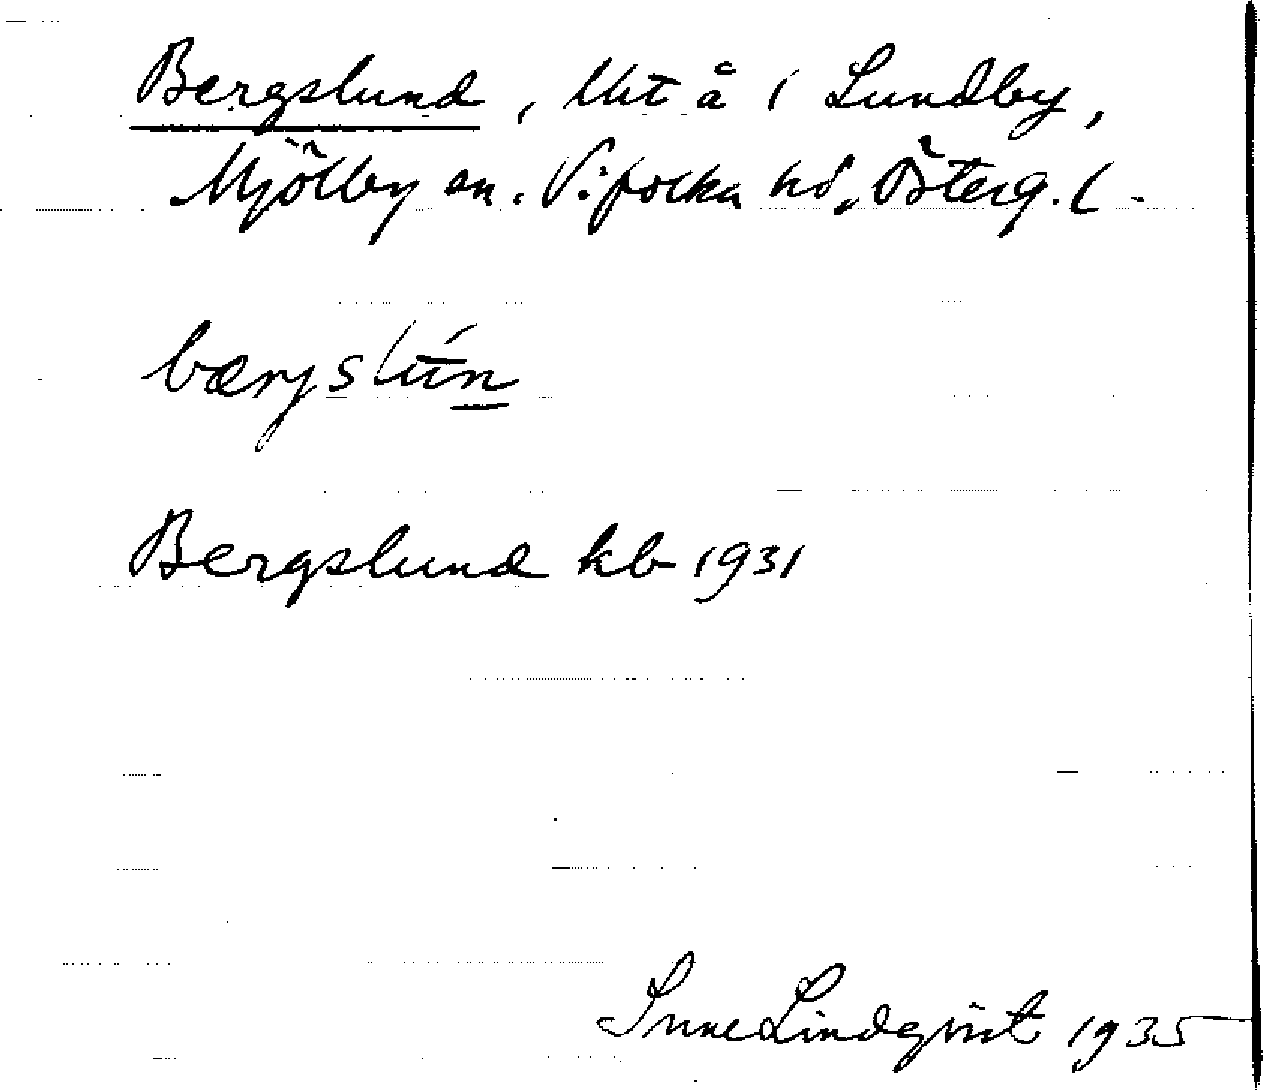 Bergslund, lht å 1 Lundby,
Mjölby sn. Vifolka hd, Österg. l.
bærjslún
Bergslund kb 1931
Sune Lindqvist 1935